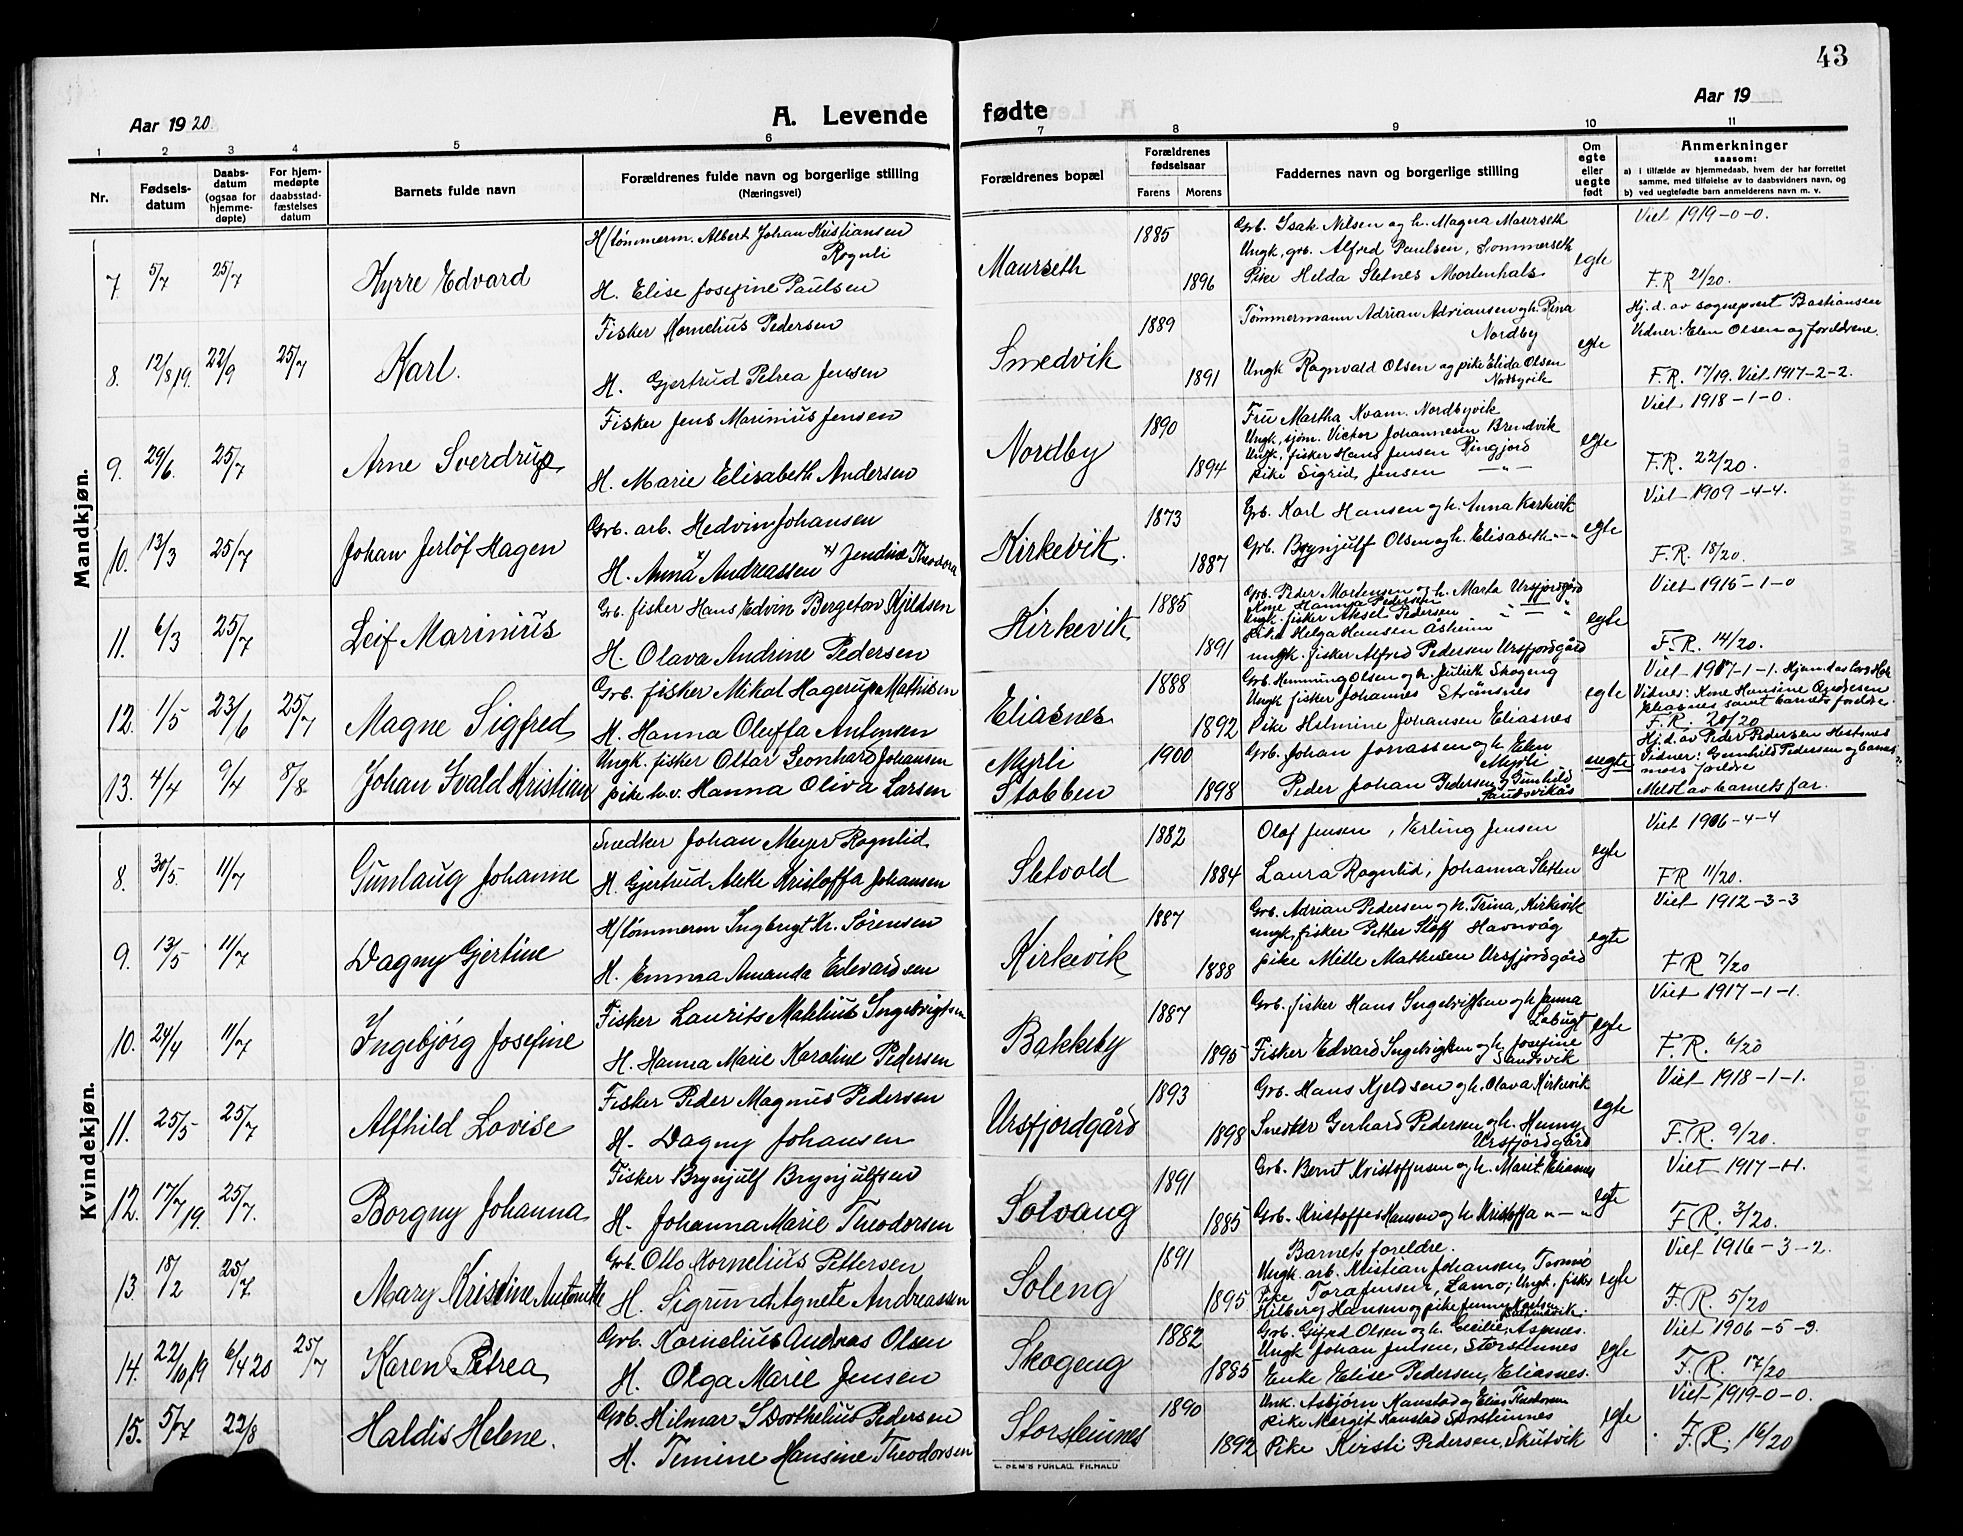 43
Aar 1920.
A. Levende fødte
Aar 19
1 2 3 4 5 6 7 8 9 10 11
Nr.
Fødsels-datum
Daabs-datum (ogsaa for hjemme-døpte)
For hjem-medøpte daabsstad-fæstelses datum
Barnets fulde navn
Forældrenes fulde navn og borgerlige stilling (Næringsvei)
Forældrenes bopæl
Forældrenes fødselsaar
Farens Morens
Faddernes navn og borgerlige stilling
Om egte eller uegte født
Anmerkninger
saasom:
a) i tilfælde av hjemmedaab, hvem der har forrettet samme, med tilføielse av to daabsvidners navn, og
b) ved uegtefødte barn anmelderens navn m. v.
Mandkjøn.
7. 5/7 25/7 Kyrre Edvard
H/tømmerm. Albert Johan Kristiansen Rognli
H. Elise Josefine Paulsen
Maurseth 1885 1896
Grb. Isak Nilsen og h. Magna Maurseth
Ungk. grb. Alfred Paulsen, Sommerseth
Pike Helda Sletnes Mortenhals
egte
Viet 1919-0-0.
F.R 21/20.
8. 12/8 19. 22/9 25/7 Karl.
Fisker Kornelius Pedersen
H. Gjertrud Petrea Jensen
Smedvik 1889 1891
Tömmermann Adrian Adriansen og h. Rina Nordby
Ungk Ragnvald Olsen og pike Elida Olsen Nordbyvik
egte
Hj.d. av sogneprest Bastiansen
Vidner: Elen Olsen og foreldrene.
F.R. 17/19. Viet 1917-2-2.
9. 29/6. 25/7 Arne Sverdrup
Fisker Jens Marinius Jensen
H. Marie Elisabeth Andersen
Nordby 1890 1894
Fru Martha Kvam. Nordbyvik
Ungk. sjøm. Victor Johannesen Brendvik
Ungk. fisker Hans Jensen Ringjord
pike Sigrid Jensen —"—
egte
Viet 1918-1-0.
F.R. 22/20.
10. 13/3 25/7 Johan Jerlöf Hagen
Grb. arb. Hedvin Johansen
H. Anna Andreassen Jendine Theodora
Kirkevik. 1873 1887
Grb. Karl Hansen og h. Anna Kirkevik
Grb. Brynjulf Olsen og h. Elisabeth —"—
egte
Viet 1909-4-4.
F.R. 18/20.
11. 6/3 25/7 Leif Marinius
Grb. fisker Hans Edvin Bergeton Kjeldsen
H. Olava Andrine Pedersen
Kirkevik 1885 1891
Grb. Peder Mortensen og h. Marta Ursfjordgård
Kone Hanna Pedersen
Ungk. fisker Aksel Pedersen
pike Helga Hansen Åsheim
ungk. fisker Alfred Pedersen Ursfjordgård
egte
Viet 1915-1-0
F.R. 14/20.
12. 1/5 23/6 25/7 Magne Sigfred
Grb. fisker Nikol Hagerup Mathisen
H. Hanna Oluffa Antonsen
Eliasnes 1888 1892
Grb. Henning Olsen og h. Julieth Skogeng
Ungk fisker Johannes Strømsnes
Pike Helmine Johansen Eliasnes
egte
Viet 1917-1-1.
Vidnes: Kone Hansine Andresen Eliasnes samt barnets foreldre.
F.R. 20/20
13. 4/4 9/4 8/8 Johan Ivald Kristian
Ungk. fisker Oltar Leonhard Johansen
pike h.v. Hanna Oliva Larsen
Myrli Stobben 1900 1898
Grb. Johan Jonassen og h. Elen Myrli
Peder Johan Pedersen og Gunhild Sandsvikås
uegte
Hj.d. av Peder Pedersen Hestsnes
Vidner: Gunhild Pedersen og barnets mors foreldre
Meldt av barnets far.
Kvindekjøn.
8. 30/5. 11/7 Gunlaug Johanne
Snedker Johan Meyer Rognlid
H. Gjertrud Alette Kristoffa Johansen
Sletvold 1882 1884
Olaf Jensen, Erling Jensen
Laura Rognlid, Johanna Sletten
egte
Viet 1906-4-4
FR 11/20.
9. 13/5 11/7 Dagny Gjertine
H/tømmerm Ingbrigt Kr. Sørensen
H. Emma Amanda Edvardsen
Kirkevik 1887 1888
Grb. Adrian Pedersen og h. Trina, Kirkevik
ungk. fisker Petter Sloff Havnvåg
pike Mille Mathisen Ursfjordgård
egte
Viet 1912-3-3
F.R 7/20
10. 24/4 11/7 Ingebjörg Josefine
Fisker Laurits Mathius Ingebrigtsen
H. Hanna Marie Karoline Pedersen
Bakkeby 1887 1895
Grb. fisker Hans Ingebrigtsen og h. Janna Labugt
Fisker Edvard Ingebrigtsen og h. Josefine Sandsvik
egte
Viet 1917-1-1.
F.R. 6/20
11. 25/5 25/7 Alfhild Lovise
Fisker Peder Magnus Pedersen
H. Dagny Johansen
Ursfjordgård 1893 1898
Grb. Hans Kjeldsen og h. Olava Kirkevik
Snedker Gerhard Pedersen og h. Henny Ursfjordgård
egte
Viet 1918-1-1.
F.R. 9/20.
12. 17/7 19. 25/7. Borgny Johanna
Fisker Brynjulf Brynjulfsen
H. Johanna Marie Theodorsen
Solvang 1891 1885
Grb. Bernt Kristoffersen og h. Marit Eliasnes
Grb. Kristoffer Hansen og h. Kristoffa "—"
egte
Viet 1917-1-1.
F.R. 3/20.
13. 18/2 25/7. Mary Kristine Antonette
Grb. Otto Kornelius Pettersen
H. Sigrund Agnete Andreassen
Soleng 1891 1895
Barnets foreldre.
Ungk. arb. Kristian Johansen, Tromsö
Pike Tora Jensen, Lamo; Ungk. fisker
Hilberg Hansen og pike Jenny Karlsen
egte
Viet 1916-3-2.
F.R. 5/20
14. 22/10, 19 6/4 20 25/7 Karen Petrea
Grb. Kornelius Andreas Olsen
H. Olga Marie Jensen
Skogeng 1882 1885
Grb. Gifrd Olsen og h. Cecilie, Aspenes.
Ungk Johan Jensen, Storsteinnes
Enke Elise Pedersen, Eliasnes.
egte
Viet 1906-5-3.
F.R. 17/20
15. 5/7 22/8 Haldis Helene.
Grb. Hilmar S Dorthelius Pedersen
H. Temine Hansine Theodorsen
Storsteinnes 1890 1892
Unk. Asbjørn Kanstad og Elias Theodorsen
pike Margit Kanstad Storsteinnes
Pike Kirsti Pedersen, Skutvik
egte
Viet 1919-0-0.
F.R. 16/20
E. SEM'S FORLAG, FR.HALD